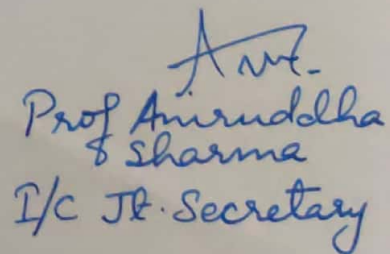 Prof Aniruddha
Sharma
I/C Jt. Secretary